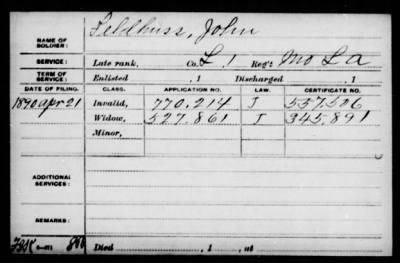 NAME OF SOLDIER: Fellhuss, John
SERVICE: Late rank, Co. L, 1 Reg't Mo L A
TERM OF SERVICE: Enlisted , 1 Discharged , 1
DATE OF FILING. CLASS. APPLICATION NO. LAW. CERTIFICATE NO.
1890 Apr 21 Invalid, 770.214 J 557.506
Widow, 527.861 J 345.891
Minor,
ADDITIONAL SERVICES:
REMARKS:
Died , 1 , at